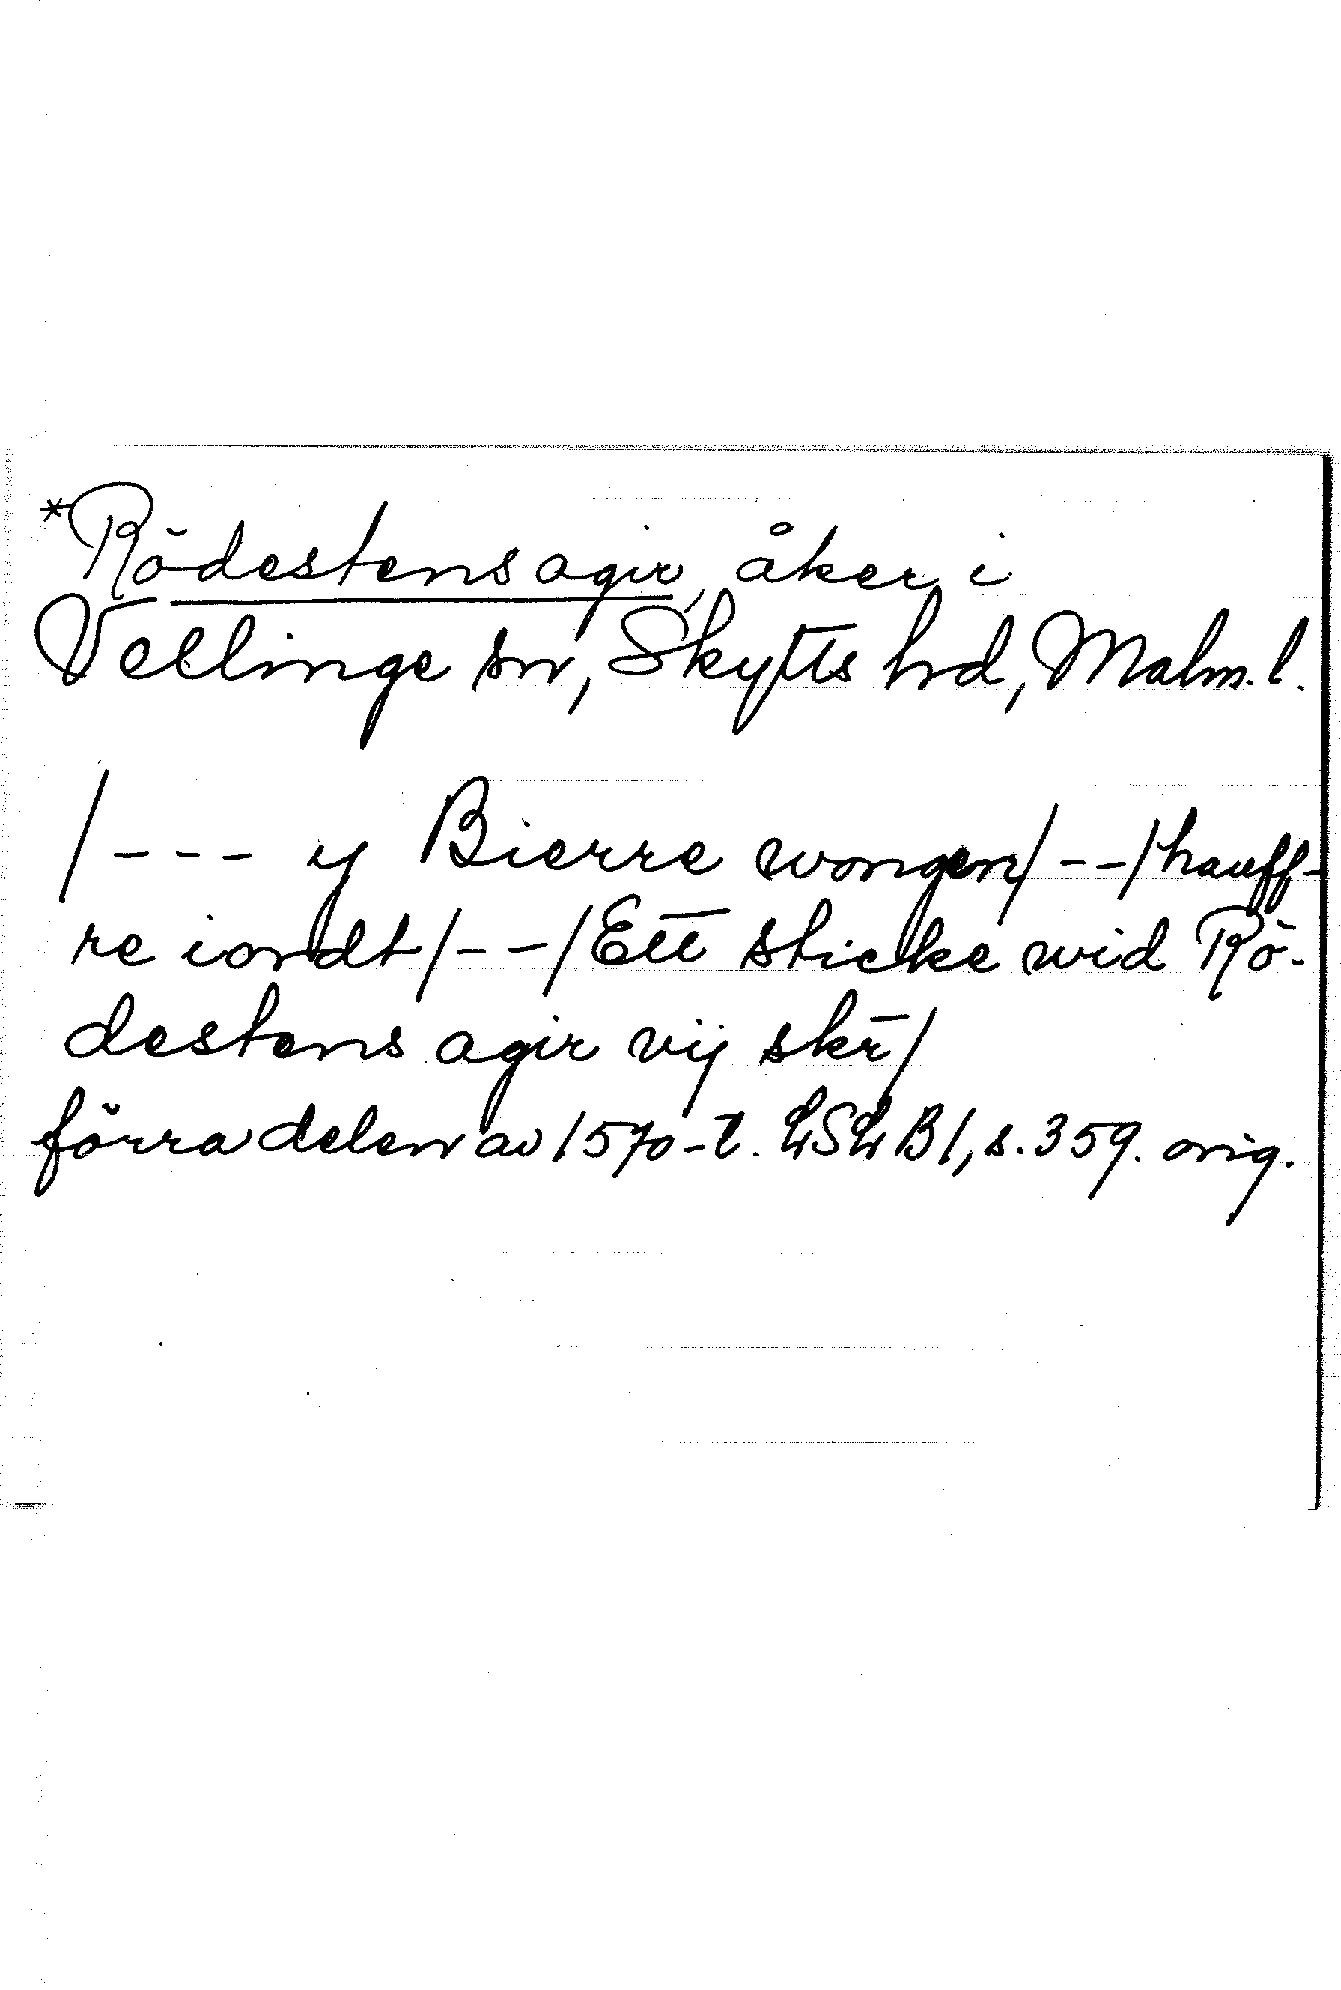 *Rödestens agir, åker i
Vellinge sn, Skytts hd, Malm. l.
/--- y Bierre wongen/--/hauff-
re iordt/--/Ett sticke wid Rö-
destens agir vij skr̄/
förra delen av 1570-t. LSLB1, s. 359. orig.